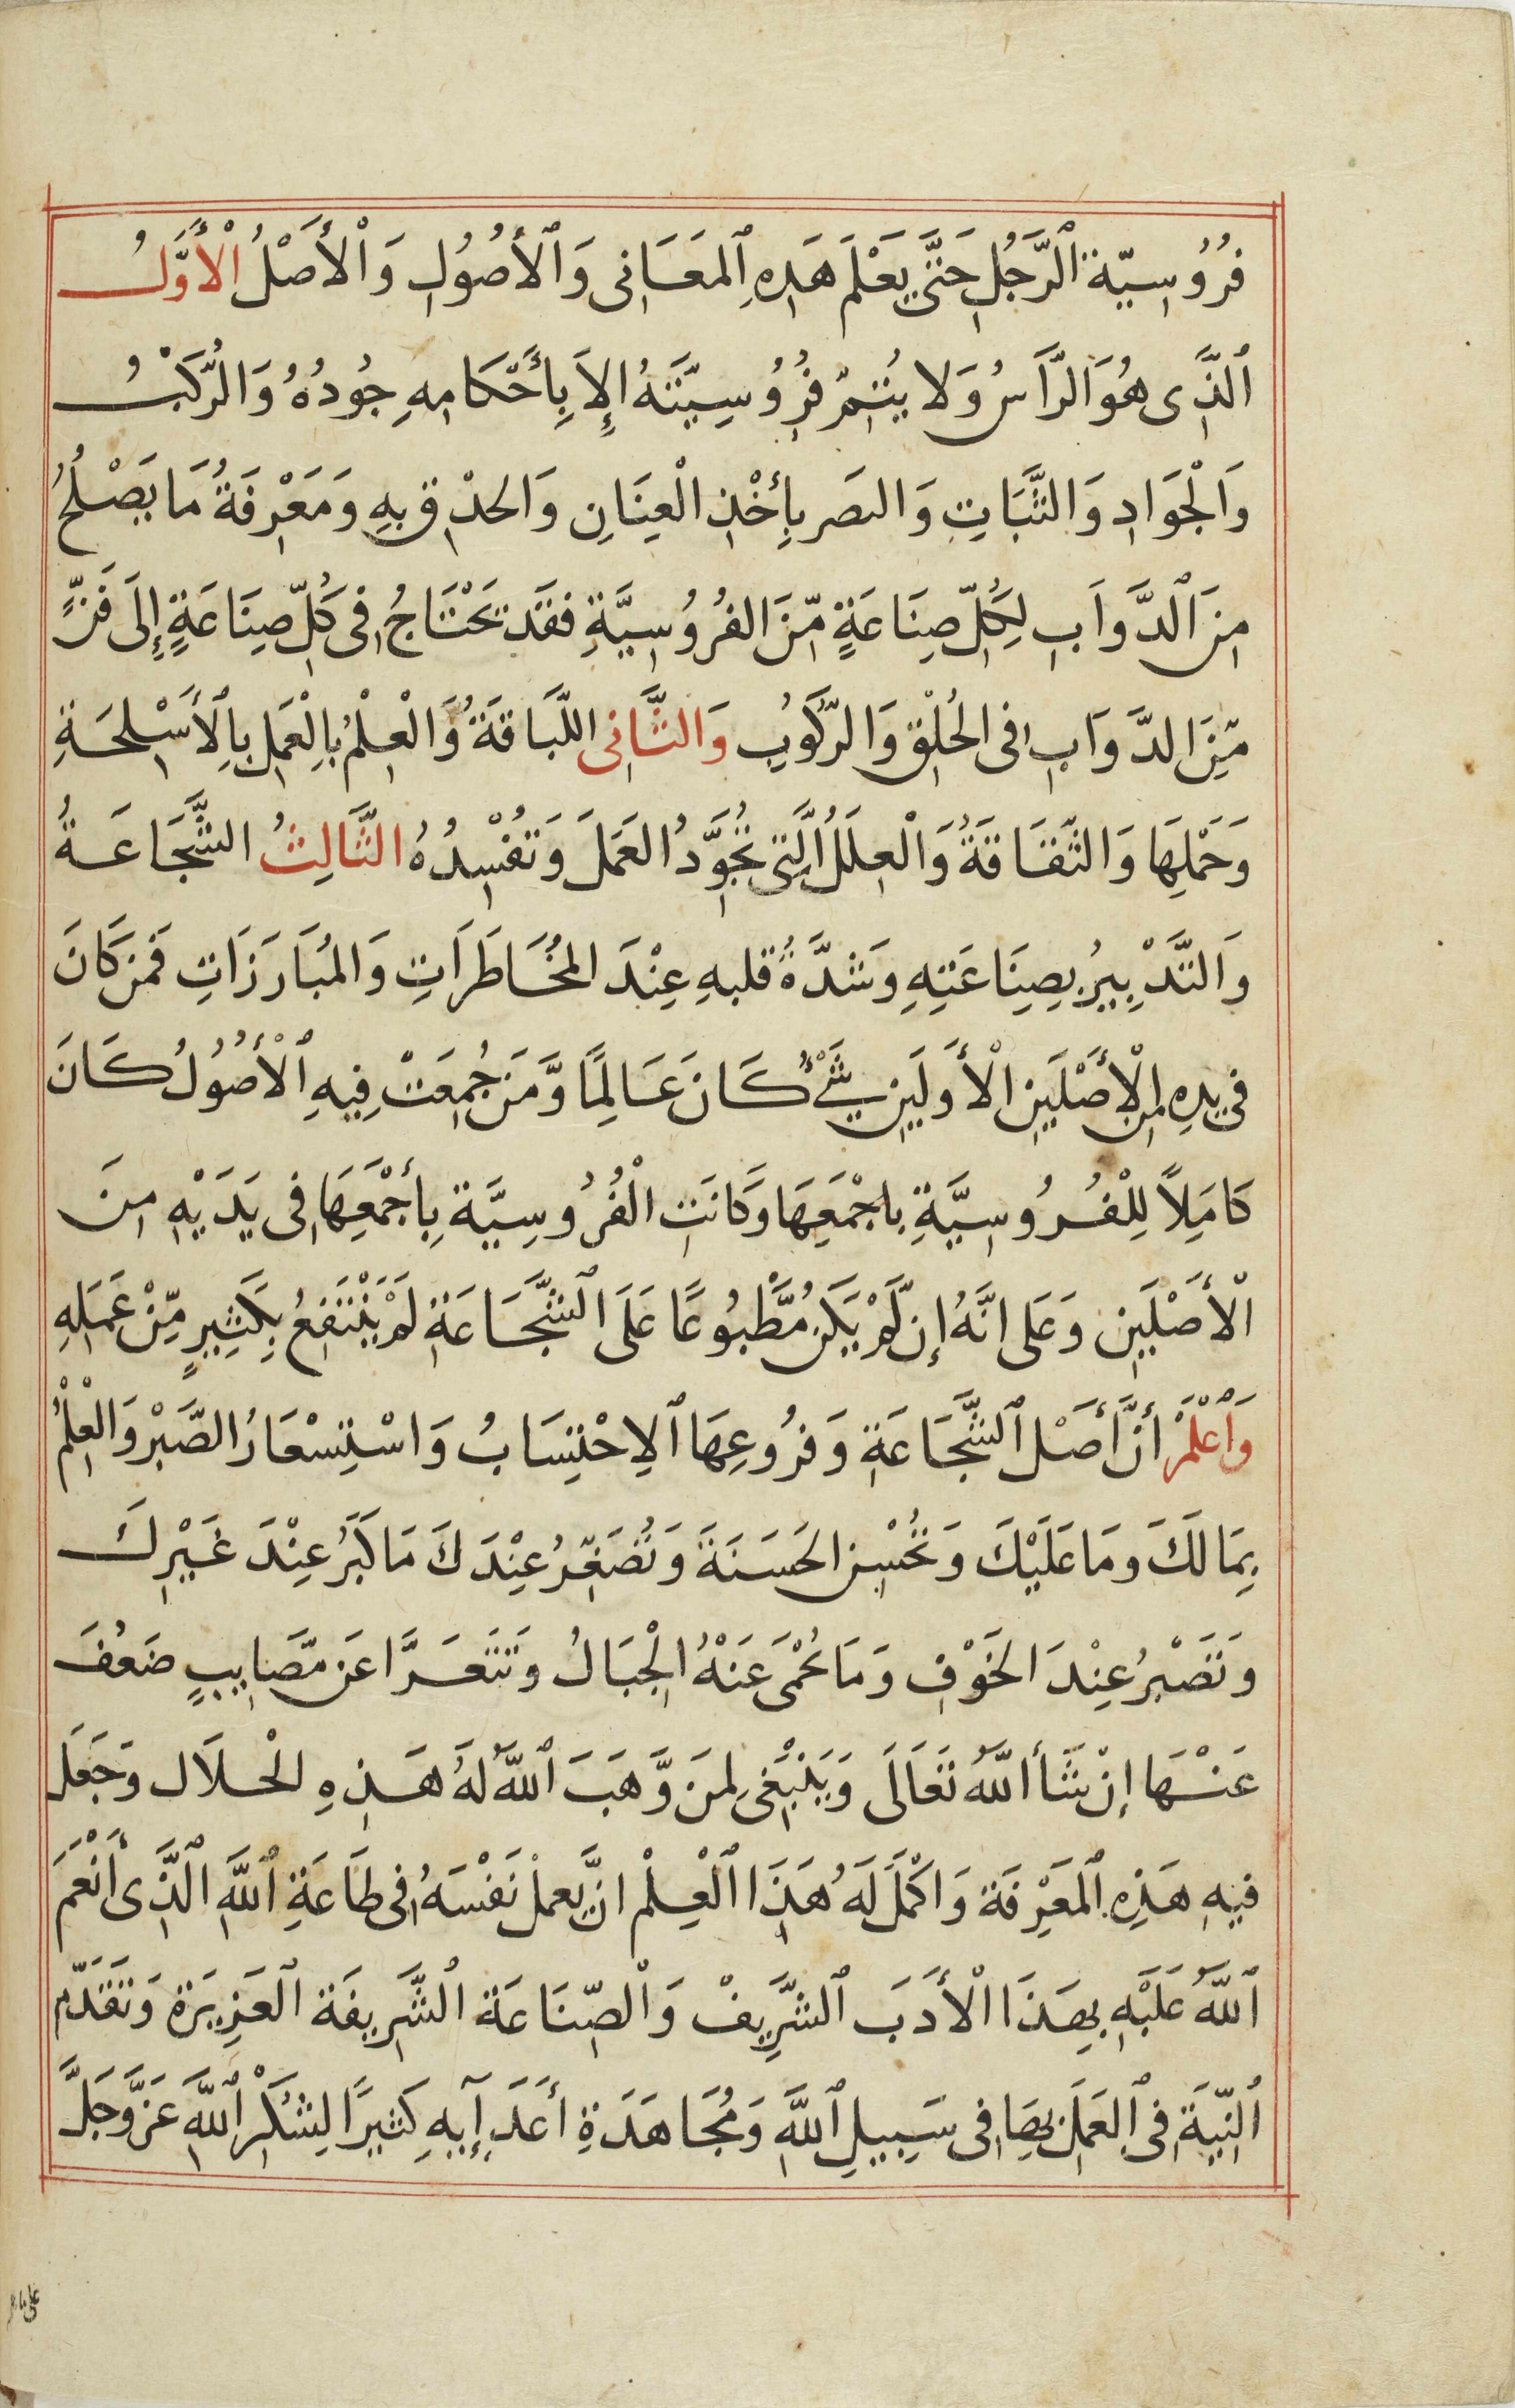 فُرُوُسِيّة ٱلرَّجُلِ حَتَّى يَعْلَمَ هَذِهِ ٱلمَعَانِى وَٱلأُصُوُلِ وَٱلْأَصْلُ الْأَوَّلُ
ٱلَّذِى هُوَ الرَّاسُ وَلا يُتِمّ فُرُوُسِيّتَهُ إلاَ بِأَحْكَامِهِ جُودُهُ وَالْرَّكبُ
وَالْجَوَادِ وَالثَّبَاتِ وَالبصَر بِأَخْذِ الْعِنَانِ وَالحذْقِ بِهِ وَمَعْرِفَةُ مَا يَصْلُحُ
مِنَ ٱلدَّوَابِ لِكُلِّ صِنَاعَةٍ مِّنَ الفُرُوُسِيَّةِ فقَد تَحْتَاجُ فِى كُلِّ صِنَاعَةٍ إِلَى فَنٍّ
مِّنَ الدَّوَابِ فِى الخُلْقِ وَالرّكُوبِ وَالثَّانِى اللّبَاقَةُ وَالْعِلْمُ بِالْعَمَلِ بِالأَسْلِحَةِ
وَحَمْلِهَا وَالثَّقَافَةُ وَالْعِلَلُ الَّتِى تُجَوِّدُ العَمَلَ وَتُفْسِدُهُ الثَّالِثُ الشَّجَاعَةُ
وَالتَّدْبِيرُ بِصِنَاعَتِهِ وَشدَّةُ قلبهِ عِنْدَ المُخَاطَرَاتِ وَالمُبَارَزَاتِ فَمَن كَانَ
فى يدِهِ مِنَ الْأَصْلَيْنِ الْأَوَلَيْنِ شَىْءٌ كَانَ عَالِمًا وَّمَن جُمِعَتْ فِيهِ ٱلْأُصُوُلُ كَانَ
كَامِلاً لِلْفُرُوسِيَّةِ بِاجْمَعِهَا وَكَانَتِ الْفُرُوسِيَّة بِأَجْمَعِهَا فِى يَدَيْهِ مِنَ
الْأَصْلَيْنِ وَعَلى انَّهُ إن لَّمْ يَكُن مَّطْبُوُعًا عَلَى ٱلشَّجَاعَةِ لَمْ يَنْتَفِعُ بِكَثِيرٍ مِّنْ عَمَلِهِ
وَٱعْلَمْ أَنَّ أَصَلَ ٱلشَّجَاعَةِ وَفرُوعِهَا ٱلِاحْتِسَابُ وَاسْتِسْعَارُ الصَّبْر وَالْعِلْمُ
بِمَا لَكَ وَمَا عَلَيْكَ وَتُحْسِن الحَسَنَةَ وَتُصَغِّرُ عِنْدَكَ مَا كَبُرَ عِنْدَ غَيْرِكَ
وَتَصْبِرُ عِنْدَ الخَوْفِ وَمَا تُحْمَى عَنْهُ الْجِبَالُ وَتَتَعَرَّا عَن مَّصَايِبٍ ضَعُفَ
عَنْهَا إِنْ شَأَ اللَّهُ تَعَالَى وَيَنْبَغِى لِمَن وَّهَبَ ٱللَّهُ لَهُ هَذِهِ الْخلَال وَجَعَلَ
فيهِ هَذِهِ ٱلمَعْرِفَة وَاكْمَلَ لَهُ هَذَا الْعِلْم ان يَّعمل نَفْسَهُ فِى طَاعَةِ ٱللَّهِ الَّذِى أَنْعَمَ
ٱللَّهُ عَلَيْهِ بِهَذَا الْأَدَبَ ٱلشَّرِيفْ وَالْصِّنَاعَة الشَّرِيفَة العَزِيزَة وَتَقَدّم
ٱلنِيَّةِ فِى ٱلعَمَلِ بِهَا فِى سَبِيلِ ٱللَّهِ وَمُجَاهَدَةِ أَعَدَإِيهِ كَثِيرًا لِشُكْرِ ٱللَّهِ عَزَّ وَجَلَّ